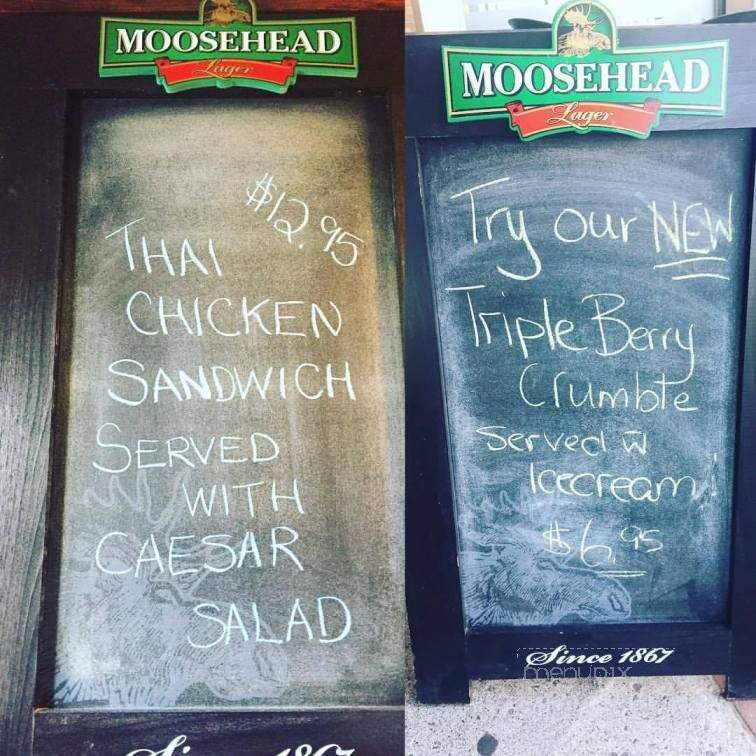 MOOSEHEAD
Lager
$12.95
THAI
CHICKEN
SANDWICH
SERVED
WITH
CAESAR
SALAD
MOOSEHEAD
Lager
Try our NEW
Triple Berry
Crumble
Served w
Icecream!
$6.95
Since 1867
menupix